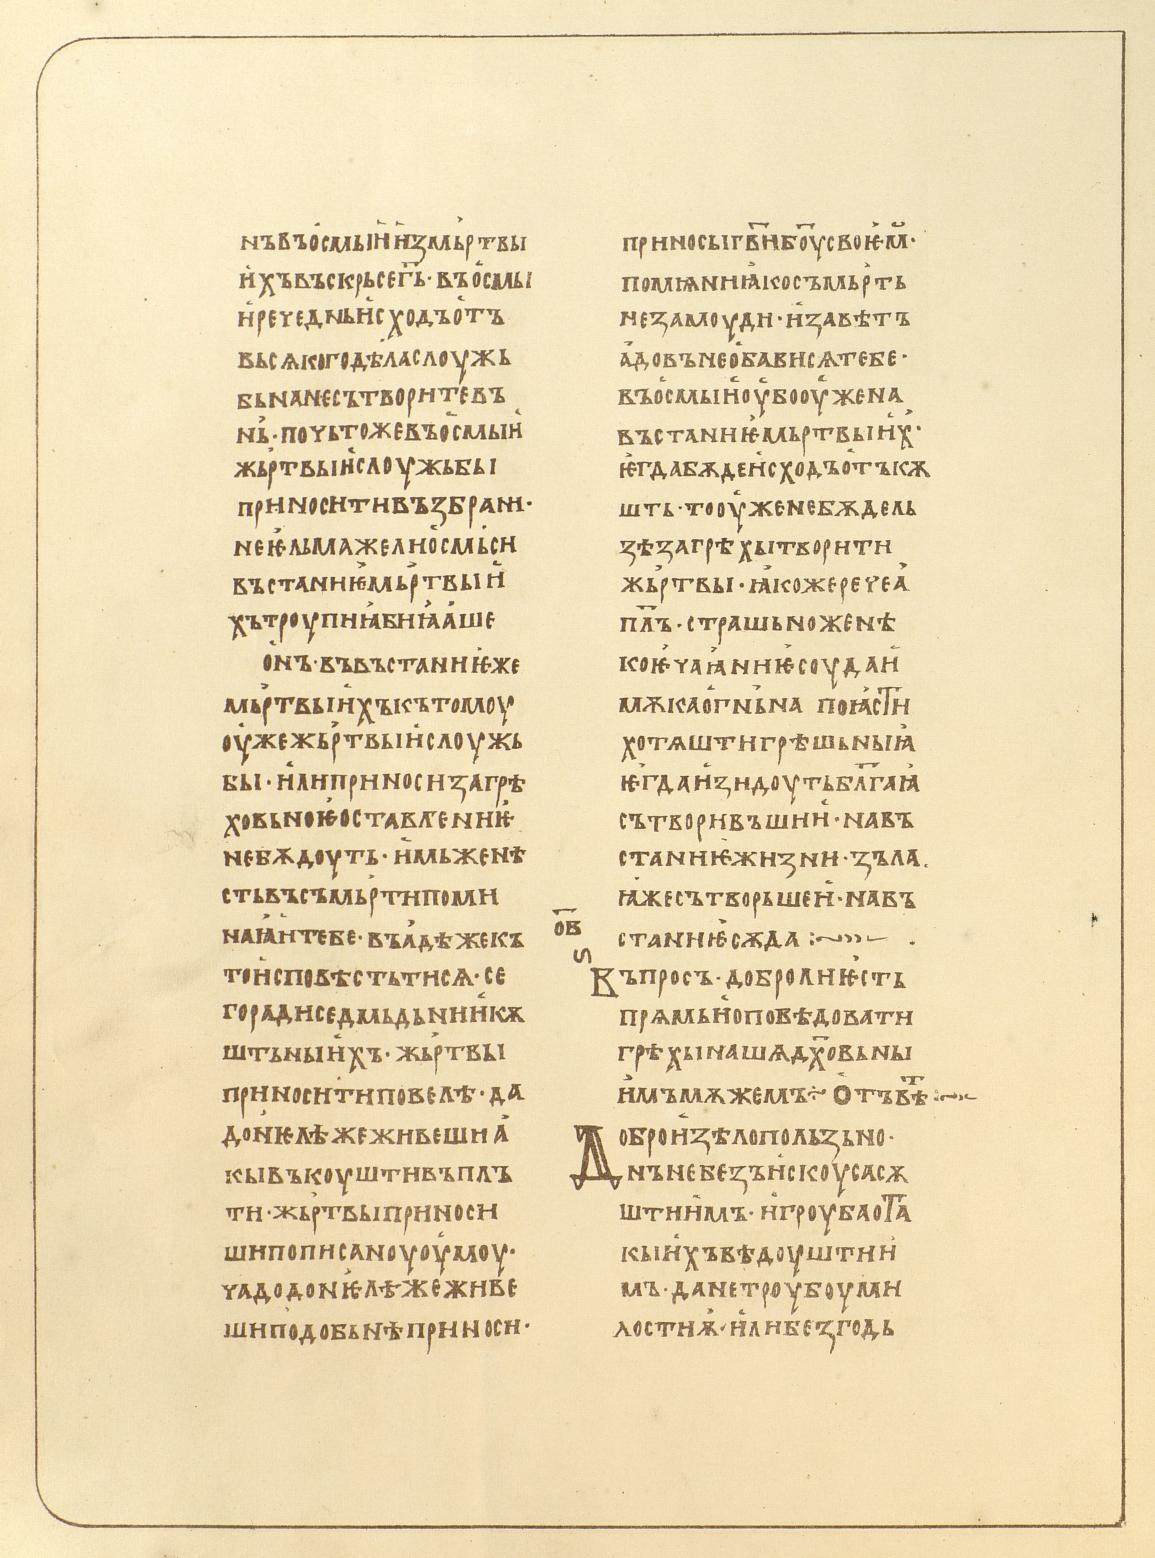 нъвъосмыи҆и҆змьртвы
и҆хъвъскрьсегь҃·въо҆смы
и҆речедньи҆сходъо҆тъ
вьсѧкогодѣласлоужь
бьнанесътворитевъ
нь·почьтожевъо҆смыи҆
жьртвыи҆слоужьбы
приноситивъзбранѥ·
неѥльмажелио҆смьси
въстаниѥмьртвыи҆
хътроупиꙗбиꙗа҆ше
о҆нъ·въвъстаниѥже
мьртвыи҆хъкътомоу
оу҆жежьртвыи҆слоужь
бы·и҆липриносизагрѣ
ховьноѥоставл҄ениѥ
небѫдоуть·и҆мьженѣ
стьвъсъмьртипоми
наꙗи҆тебе·въа҆дѣжекъ
тои҆сповѣстьтисѧ·се
горадиседмьдьнии҆кѫ
штьныи҆хъ·жьртвы
приноситиповелѣ·да
дон҄ѥлѣжеживешиа҆
кывъкоуштивъплъ
ти·жьртвыприноси
шипописаноуоу҆моу·
чадодон҄ѥлѣжеживе
шиподобьнѣприноси·
приносыгв҃иб҃оусвоѥм҃·
помѧниꙗкосъмьрть
незамоуди·и҆завѣтъ
а҆довънео҆бависѧтебе·
въо҆смыи҆оу҆бооу҆жена
въстаниѥмьртвыи҆х·
ѥгдабѫдеи҆сходъо҆тъкѫ
шть·тооу҆женебѫдель
зѣзагрѣхытворити
жьртвы·ꙗкожеречеа҆
пл҃ъ·страшьноженѣ
коѥчаꙗниѥсоудаи҆
мѫкао҆гньна поꙗстⷮи
хотѧштигрѣшьныꙗ
ѥгдаи҆зидоутьбл҃гаꙗ
сътворивъшии҆·навъ
станиѥжизни·зъла.
ꙗжесътворьшеи҆·навъ
станиѥсѫда :~»»~ .
о҃в
ѕ
Въпросъ·добролиѥсть
прѧмьи҆оповѣдовати
грѣхынашѧдх҃овьны
и҆мъмѫжемъ÷ Отъвѣⷮ:~~
Доброи҆зѣлопользьно·
нънебезъи҆скоусасѫ
штии҆мъ·и҆гроубаоⷮа
кыи҆хъвѣдоуштии҆
мъ·данетроубоуми
лостиѭ·и҆либезгодь